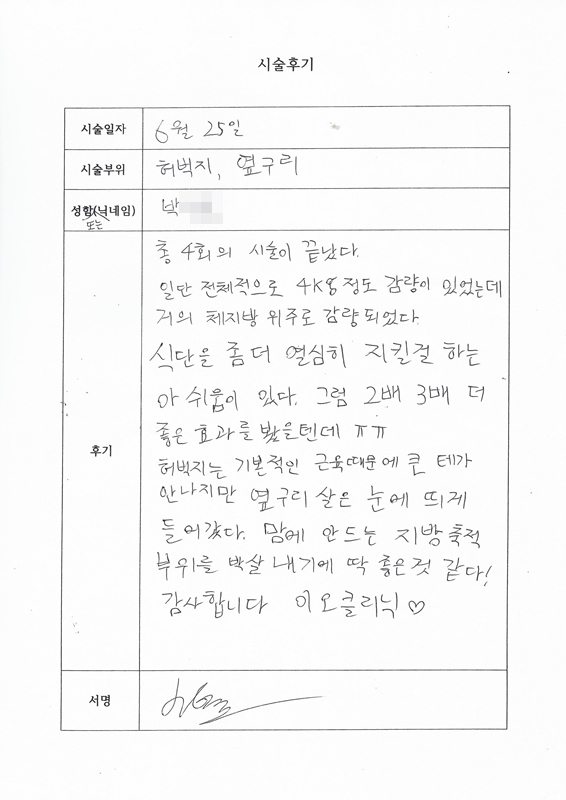 시술후기
시술일자 6월 25일
시술부위 허벅지, 옆구리
성함(닉네임) 박
또는
총 4회의 시술이 끝났다.
일단 전체적으로 4kg정도 감량이 있었는데
거의 체지방 위주로 감량되었다.
식단을 좀 더 열심히 지킬걸 하는
아쉬움이 있다. 그럼 2배 3배 더
좋은 효과를 봤을텐데 ㅠㅠ
후기
허벅지는 기본적인 근육때문에 큰 테가
안나지만 옆구리 살은 눈에 띄게
들어갔다. 맘에 안드는 지방축적
부위를 박살 내기에 딱 좋은것 같다!
감사합니다 이오클리닉♡
서명